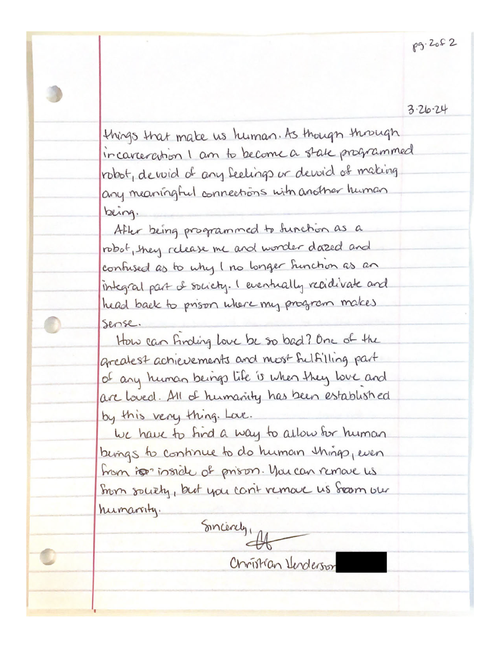 pg. 2 of 2
3-26-24
things that make us human. As though through
incarceration I am to become a state programmed
robot, devoid of any feelings or devoid of making
any meaningful connections with another human
being.
After being programmed to function as a
robot, they release me and wonder dazed and
confused as to why I no longer function as an
integral part of society. I eventually recidivate and
head back to prison where my program makes
sense.
How can finding love be so bad? One of the
greatest achievements and most fulfilling part
of any human beings life is when they love and
are loved. All of humanity has been established
by this very thing. Love.
We have to find a way to allow for human
beings to continue to do human things, even
from inside of prison. You can remove us
from society, but you can't remove us from our
humanity.
Sincerely,
Christian Henderson